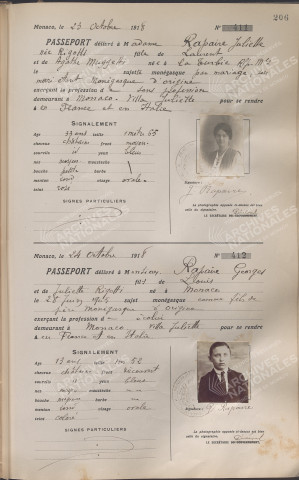 206
Monaco, le 23 octobre 1918 411
PASSEPORT délivré à Madame Rapaire Juliette
née Rigotti fille de Laurent
et de Agathe né à La Turbie
le sujette monégasque par mariage
mari étant Monégasque d'origine
exerçant la profession de sans profession
demeurant à Monaco, Villa Juliette pour se rendre
à en France et en Italie
SIGNALEMENT
âge 39 ans taille 1 mètre 65
cheveux châtains front moyen
sourcils yeux bleus
nez moyen moustache
bouche petite barbe
menton rond visage ovale
teint rose
Signature :
J. Rapaire
SIGNES PARTICULIERS
La photographie apposée ci-dessus est bien
celle du signataire.
LE SECRÉTAIRE DU GOUVERNEMENT,
Monaco, le 24 octobre 1918 412
PASSEPORT délivré à Monsieur Rapaire Georges
fils de Louis
et de Juliette Rigotti né à Monaco
le sujet monégasque comme fils de
père monégasque d'origine
exerçant la profession de écolier
demeurant à Monaco villa Juliette pour se rendre
à en France et en Italie
SIGNALEMENT
âge 13 ans taille 1m 52
cheveux châtains front découvert
sourcils yeux bleus
nez moyen moustache
bouche moyenne barbe
menton rond visage ovale
teint coloré
Signature :
G. Rapaire
SIGNES PARTICULIERS
La photographie apposée ci-dessus est bien
celle du signataire.
LE SECRÉTAIRE DU GOUVERNEMENT,